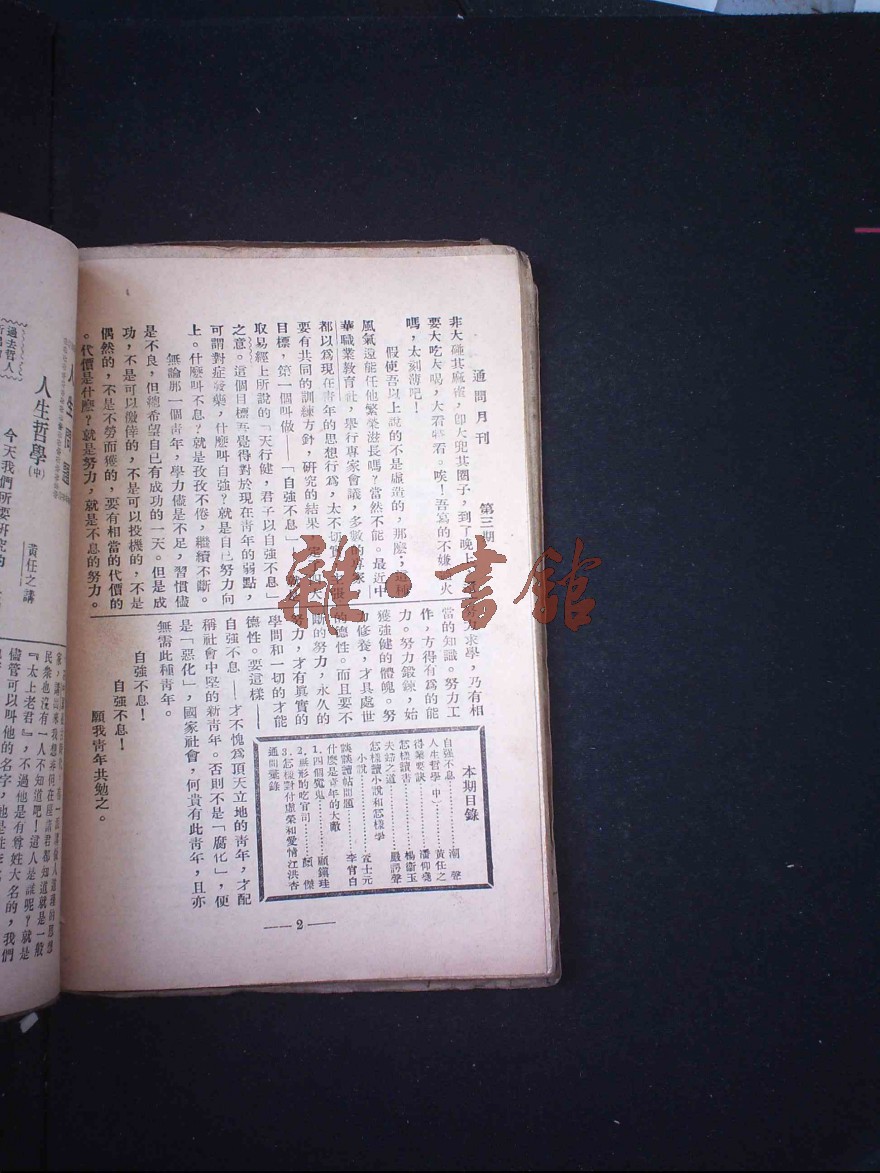 通問月刊　第三期
非大碰其麻雀，卽大兜其圈子，到了晚上，
要大吃大喝，大看 看。唉！吾寫的不嫌 火
嗎，太刻薄吧！
假使吾以上說的不是虛造的，那麼，這種
風氣還能任他繁榮滋長嗎？當然不能。最近中
華職業教育社，舉行專家會議，多數的專家
都以爲現在青年的思想行爲，太不切實，主張
要有共同的訓練方針，研究的結果，定了四大
目標，第一個叫做——「自強不息」
取易經上所說的「天行健，君子以自強不息」
之意。這個目標吾覺得對於現在青年的弱點，
可謂對症發藥，什麼叫自強？就是自己努力向
上。什麼叫不息？就是孜孜不倦，繼續不斷。
無論那一個青年，學力儘是不足，習慣儘
是不良，但總希望自已有成功的一天。但是成
功，不是可以僥倖的，不是可以投機的，不是
偶然的，不是不勞而獲的，要有相當的代價的
。代價是什麼？就是努力，就是不息的努力。
力求學，乃有相
當的知識。努力工
作，方得有爲的能
力。努力鍛鍊，始
獲強健的體魄。努
力修養，才具處世
的德性。而且要不
斷的努力，永久的
努力，才有真實的
學問和一切的才能
德性。要這樣——
自強不息——才不愧爲頂天立地的靑年，才配
稱社會中堅的新靑年。否則不是「腐化」，便
是「惡化」，國家社會，何貴有此種靑年，且亦
無需此種靑年。
自強不息！
自強不息！
願我靑年共勉之。
本期目錄
自強不息…………潮聲
人生哲學（中）……黃任之
得業要訣…………潘仰堯
怎樣讀書…………楊衞玉
夫婦之道…………嚴諤聲
怎樣讀小說和怎樣學
小說…………金士元
談談讀帖問題………李肖白
什麼是青年的大敵
1.四個冤鬼…………顧鏡珪
2.無形的吃官司……顏傑
3.怎樣對付虛榮和愛情江洪杏
通問彙錄
—2—
過去哲人
人生哲學（中）
黃任之講
今天我們所要研究的
民衆也沒有一人不知道吧！這人是誰呢？就是
『太上老君』，不過他是有尊姓大名的，我們
儘管可以叫他的名字，他是姓
雜·書館